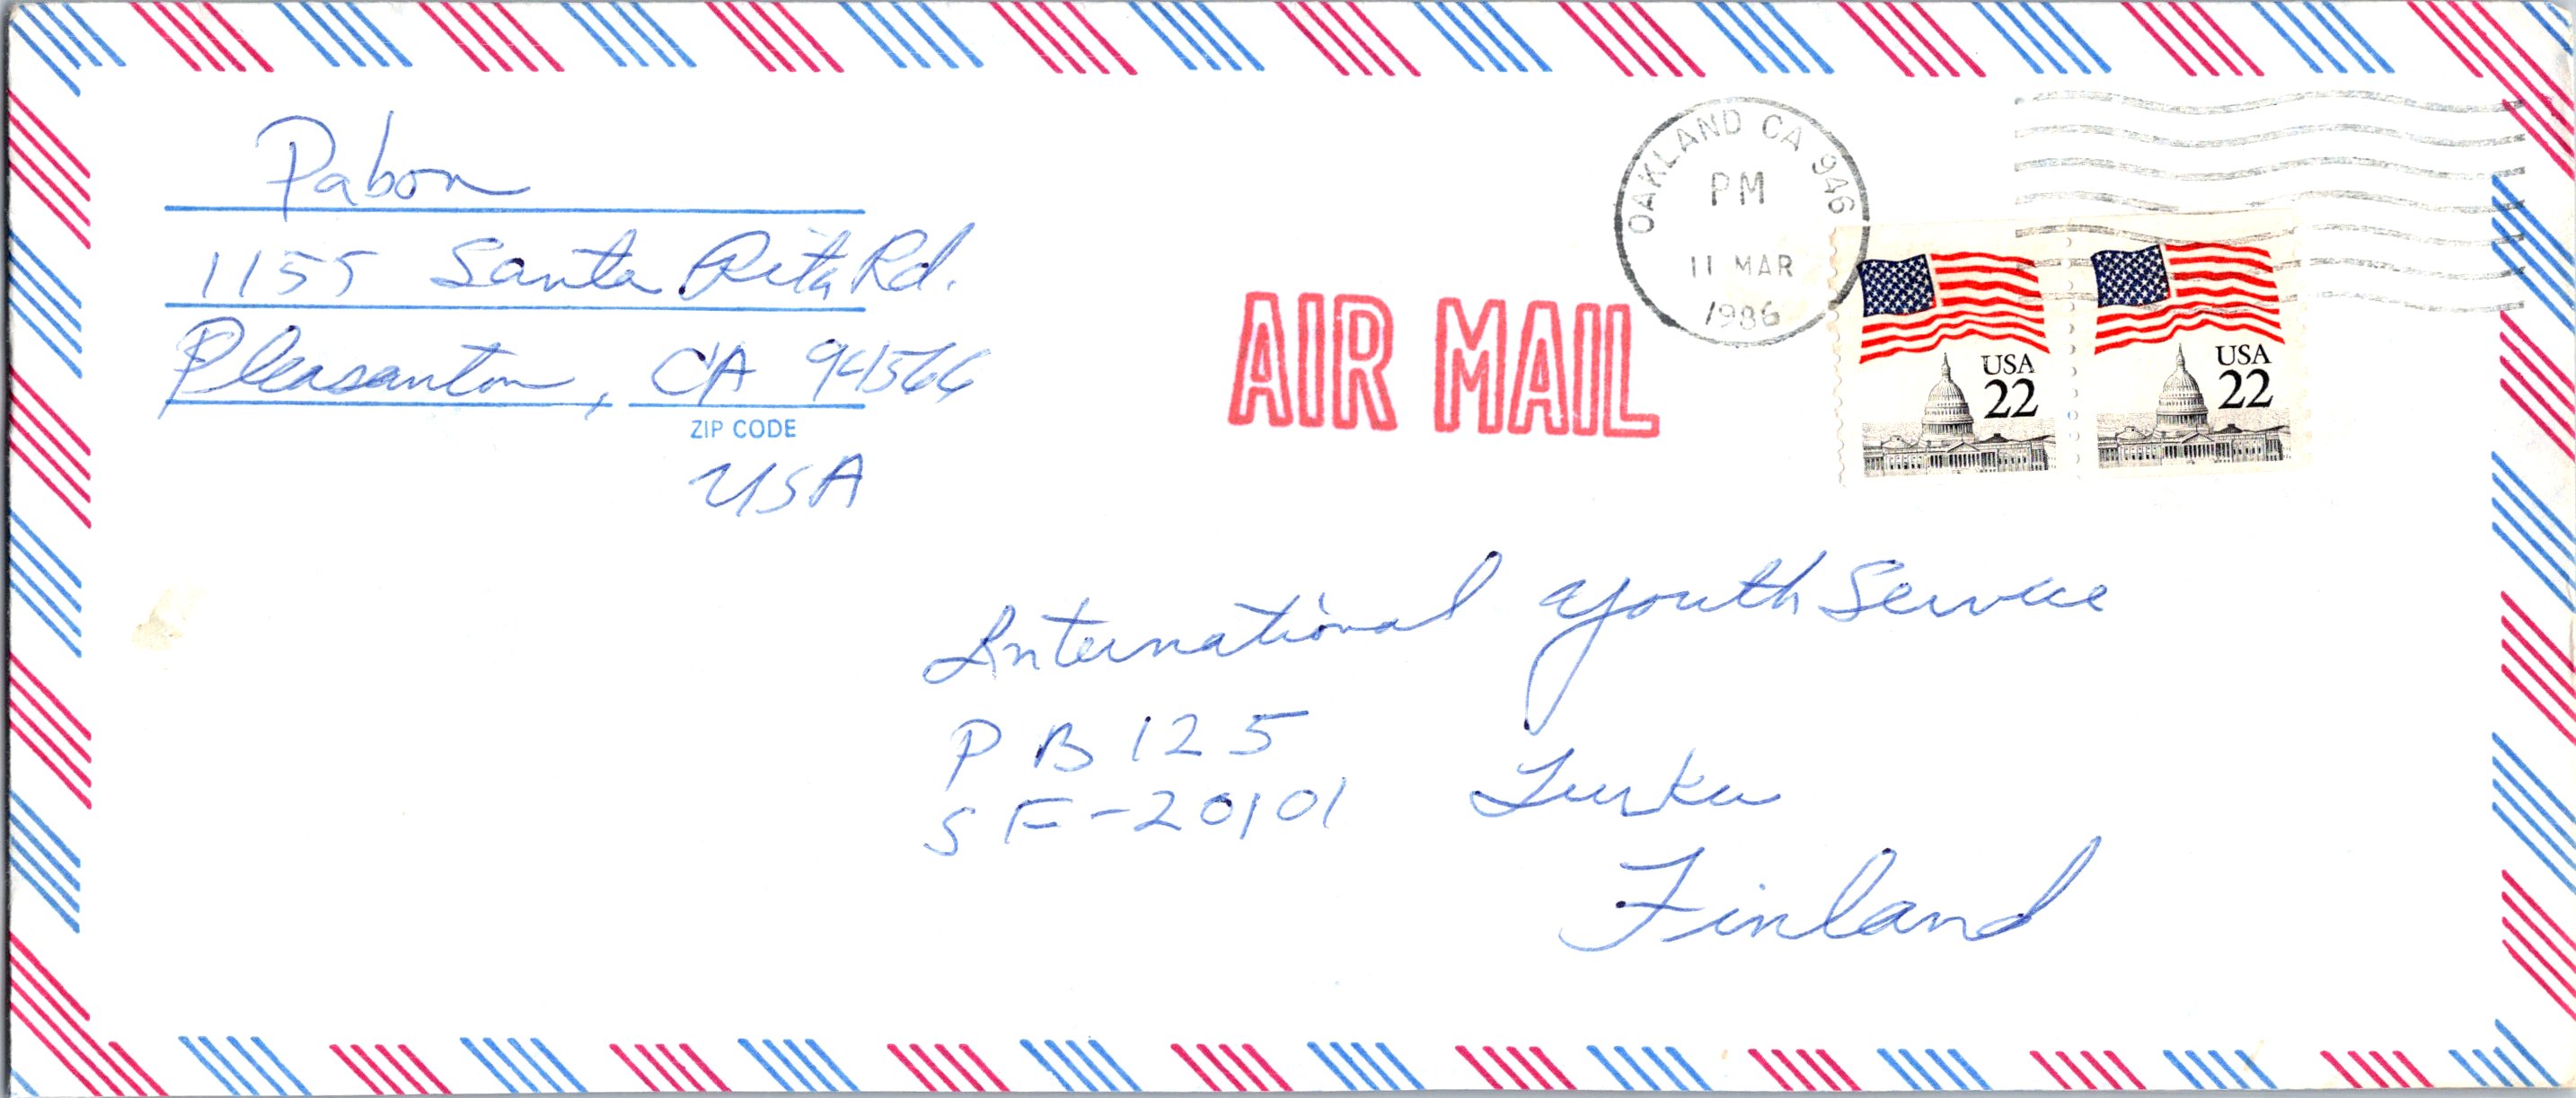 Pabon
1155 Santa Rita Rd.
Pleasanton, CA 94566
ZIP CODE
USA
AIR MAIL
OAKLAND CA 946
PM
11 MAR
1986
USA
22
USA
22
International Youth Service
P B 125
SF-20101 Turku
Finland